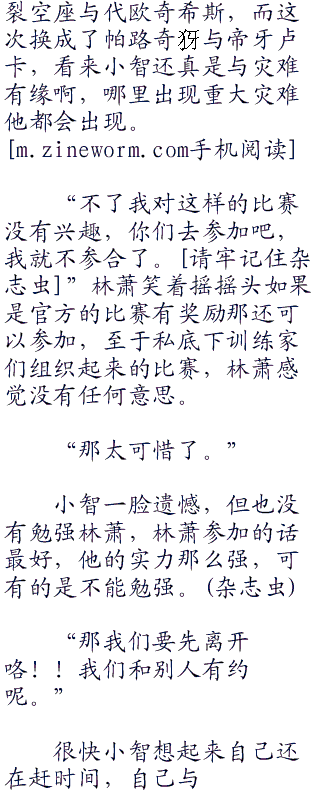 裂空座与代欧奇希斯，而这
次换成了帕路奇犽与帝牙卢
卡，看来小智还真是与灾难
有缘啊，哪里出现重大灾难
他都会出现。
[m.zineworm.com手机阅读]
“不了我对这样的比赛
没有兴趣，你们去参加吧，
我就不参合了。[请牢记住杂
志虫]”林萧笑着摇摇头如果
是官方的比赛有奖励那还可
以参加，至于私底下训练家
们组织起来的比赛，林萧感
觉没有任何意思。
“那太可惜了。”
小智一脸遗憾，但也没
有勉强林萧，林萧参加的话
最好，他的实力那么强，可
有的是不能勉强。(杂志虫)
“那我们要先离开
咯！！我们和别人有约
呢。”
很快小智想起来自己还
在赶时间，自己与